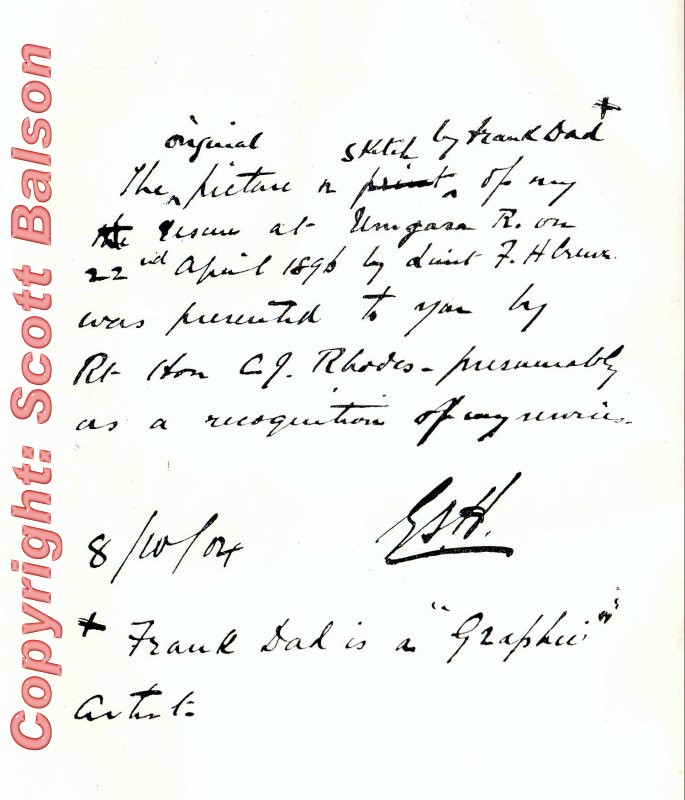 Copyright: Scott Balson
original sketch by Frank Dad +
The picture or print of my
the rescue at Umgasa R. on
22nd April 1896 by Lieut F. H Crewe
was presented to you by
Rt Hon C. J. Rhodes - presumably
as a recognition of my services.
8/10/04 G.S.H.
+ Frank Dad is a "Graphic"
artist.